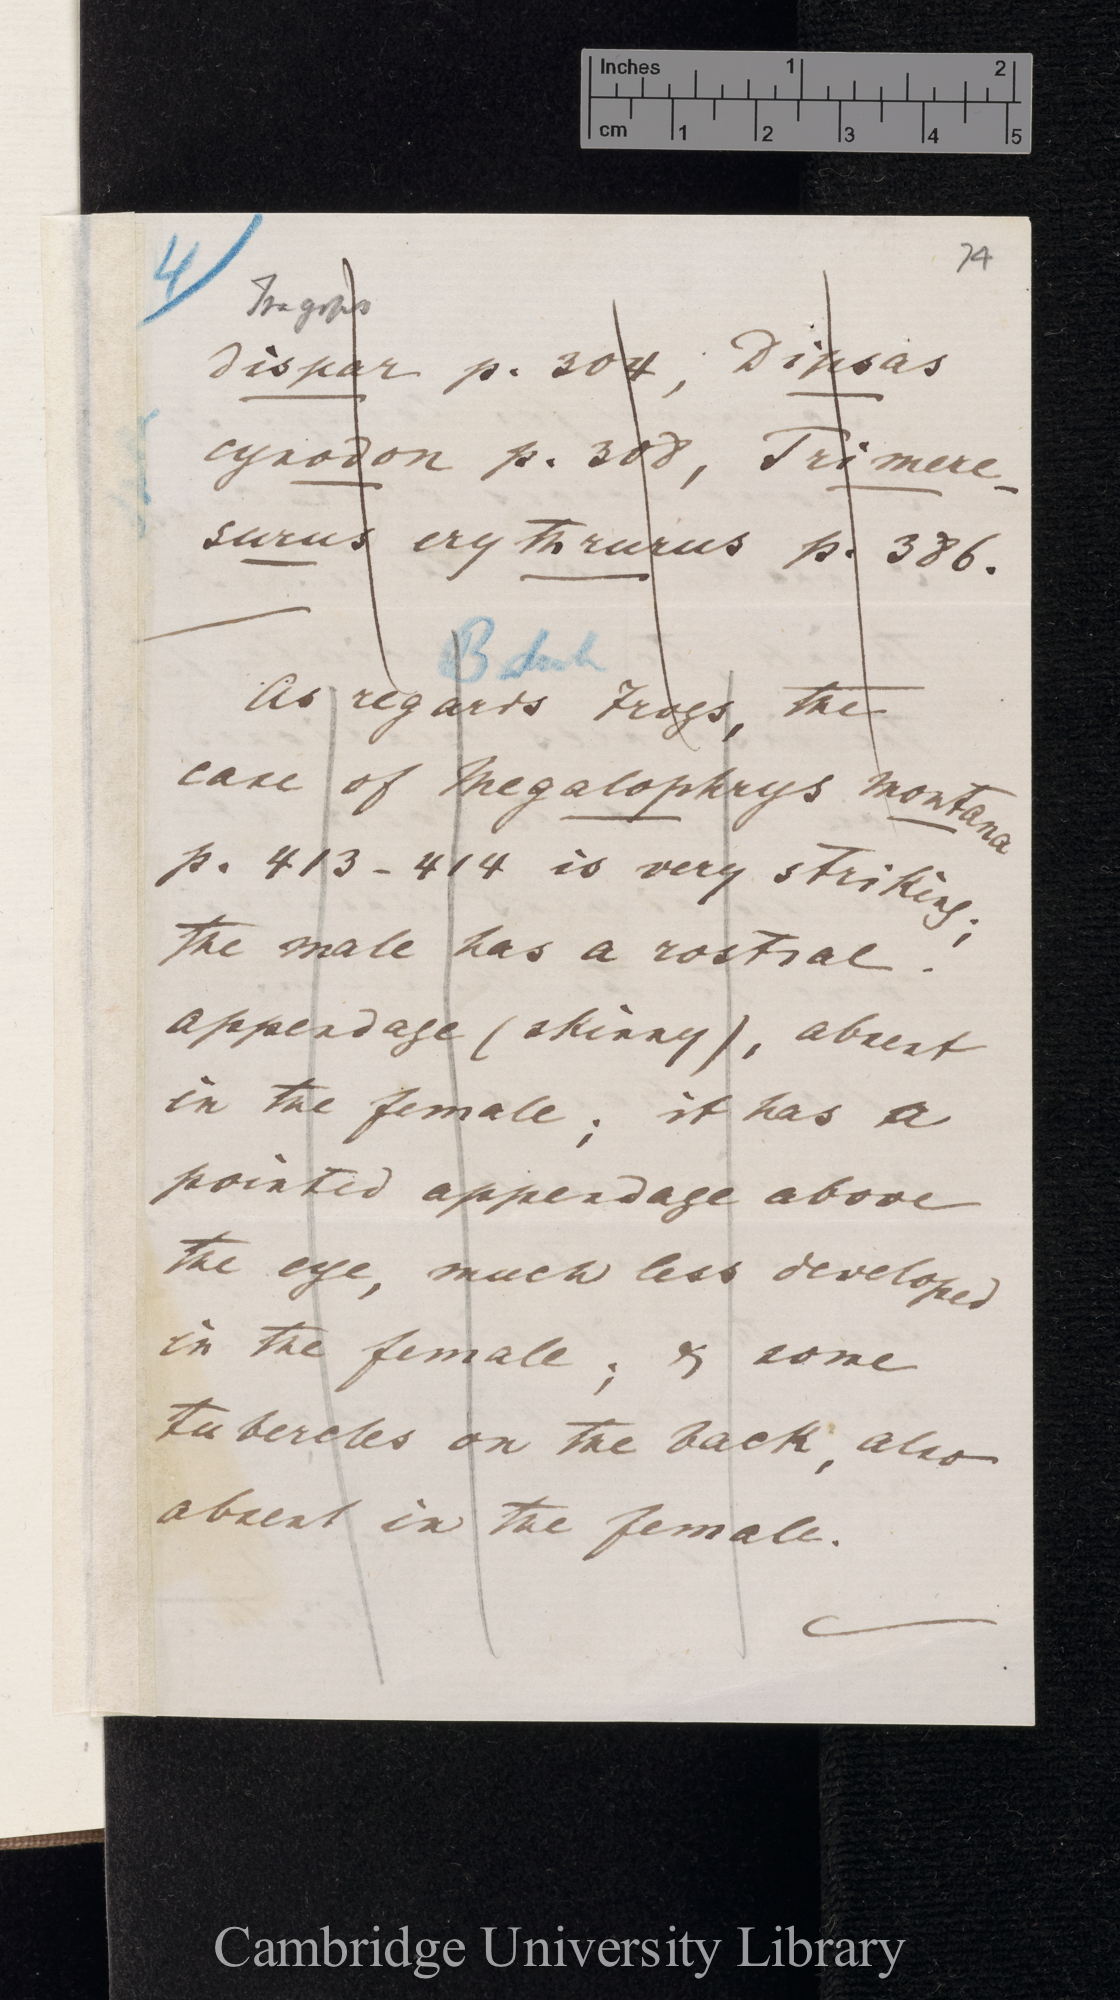 Inches 1 2
cm 1 2 3 4 5
4
74
Tragops
dispar p. 304, Dipsas
cynodon p. 308, Trimere-
surus erythrurus p. 386.
B
As regards Frogs, the
case of Megalophrys montana
p. 413-414 is very striking;
the male has a rostral
appendage (skinny), absent
in the female; it has a
pointed appendage above
the eye, much less developed
in the female; & some
tubercles on the back, also
absent in the female.
Cambridge University Library